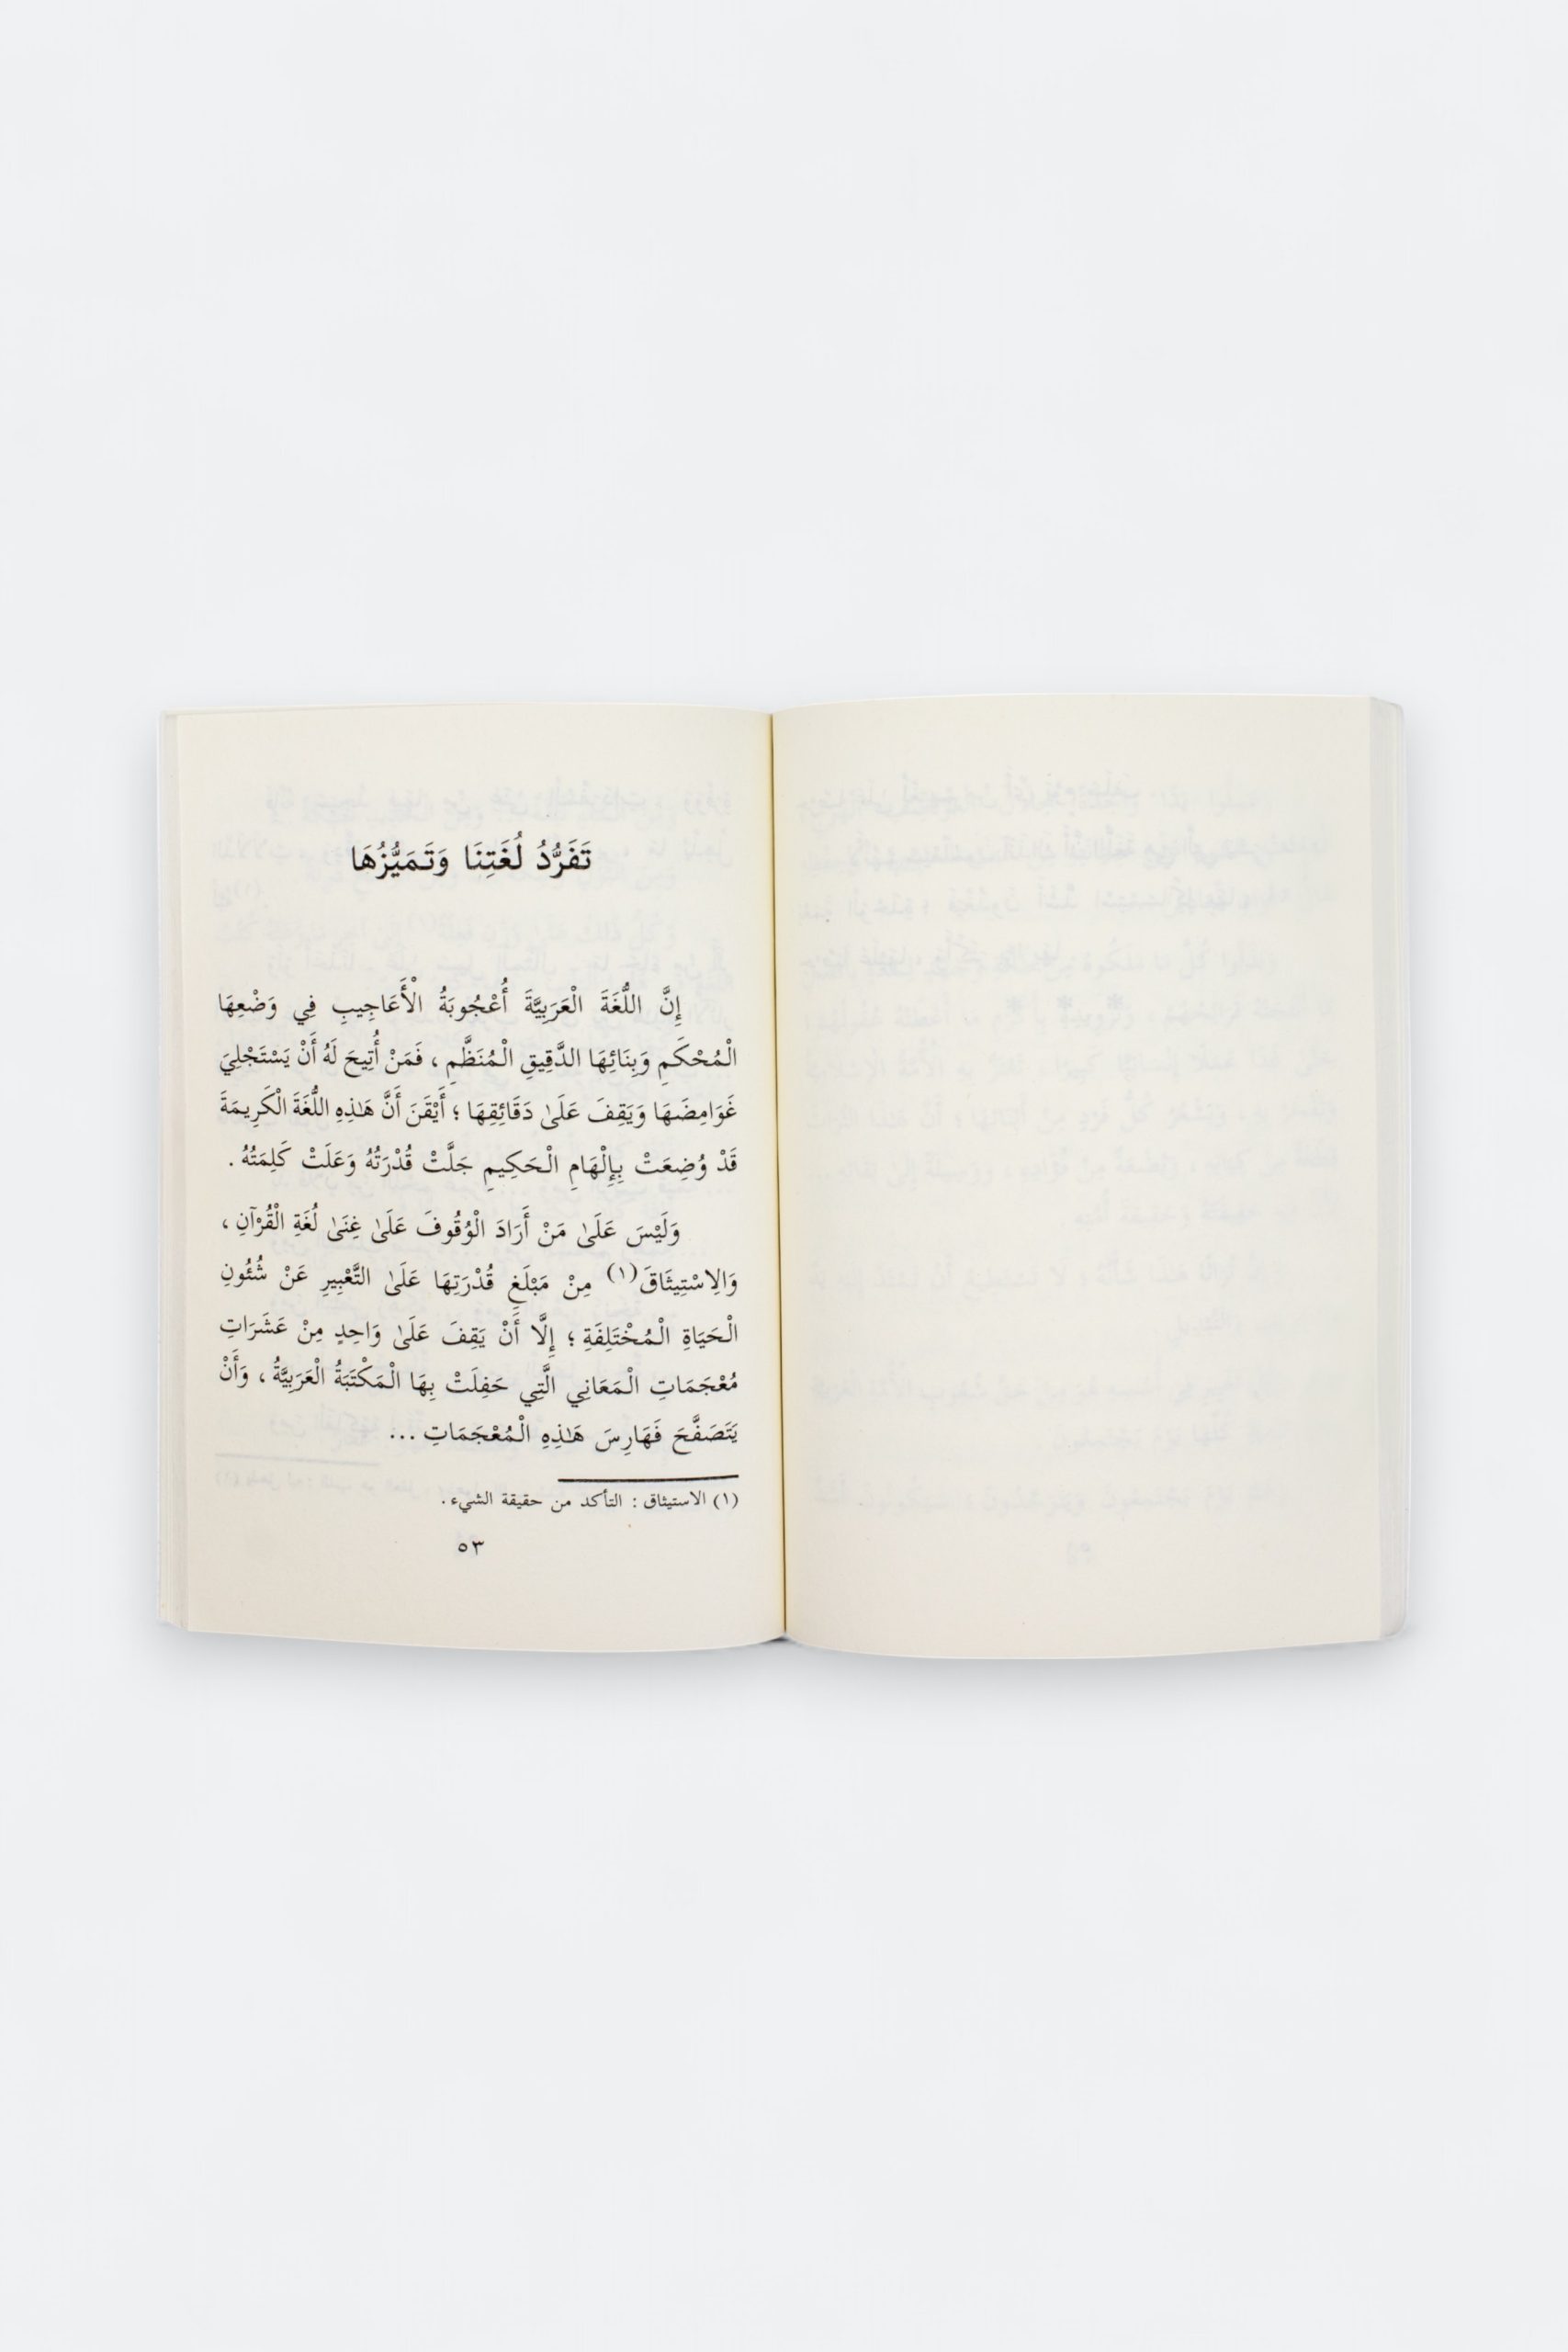 تَفَرُّدُ لُغَتِنَا وَتَمَيُّزُهَا
إِنَّ اللُّغَةَ الْعَرَبِيَّةَ أُعْجُوبَةُ الْأَعَاجِيبِ فِي وَضْعِهَا
الْمُحْكَمِ وَبِنَائِهَا الدَّقِيقِ الْمُنَظَّمِ ، فَمَنْ أُتِيحَ لَهُ أَنْ يَسْتَجْلِيَ
غَوَامِضَهَا وَيَقِفَ عَلَىٰ دَقَائِقِهَا ؛ أَيْقَنَ أَنَّ هَـٰذِهِ اللُّغَةَ الْكَرِيمَةَ
قَدْ وُضِعَتْ بِإِلْهَامِ الْحَكِيمِ جَلَّتْ قُدْرَتُهُ وَعَلَتْ كَلِمَتُهُ .
وَلَيْسَ عَلَىٰ مَنْ أَرَادَ الْوُقُوفَ عَلَىٰ غِنَىٰ لُغَةِ الْقُرْآنِ ،
وَالِاسْتِيثَاقَ(١) مِنْ مَبْلَغِ قُدْرَتِهَا عَلَىٰ التَّعْبِيرِ عَنْ شُئُونِ
الْحَيَاةِ الْمُخْتَلِفَةِ ؛ إِلَّا أَنْ يَقِفَ عَلَىٰ وَاحِدٍ مِنْ عَشَرَاتِ
مُعْجَمَاتِ الْمَعَانِي الَّتِي حَفِلَتْ بِهَا الْمَكْتَبَةُ الْعَرَبِيَّةُ ، وَأَنْ
يَتَصَفَّحَ فَهَارِسَ هَـٰذِهِ الْمُعْجَمَاتِ ...
(١) الاستيثاق : التأكد من حقيقة الشيء .
٥٣